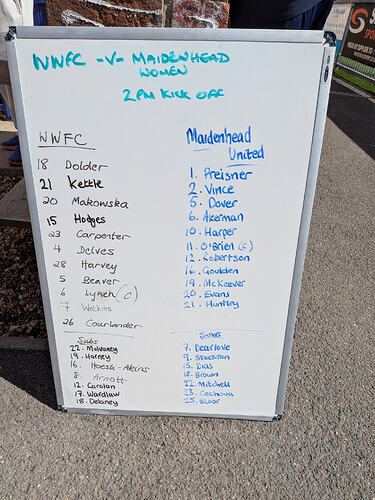 WWFC -V- MAIDENHEAD
WOMEN
2PM KICK OFF
WWFC
18 Dolder
21 Kettle
20 Makowska
15 Hodges
23 Carpenter
4 Delves
28 Harvey
5 Beaver
6 Lynch (c)
7 Watkins
26 Courlander
Subs
22. Mulvaney
19. Harney
16.
8. Arnott
12. Carolan
17. Wardlaw
18. Delaney
Maidenhead
United
1. Preisner
2. Vince
5. Dover
6. Akerman
10. Harper
11. O'Brien (c)
12. Robertson
16. Goulden
19. McKeever
20. Evans
21. Huntley
Subs
7. Dearlove
9. Stockton
15. Dias
18. Brown
22. Mitchell
23. Cechova
25. Bloor